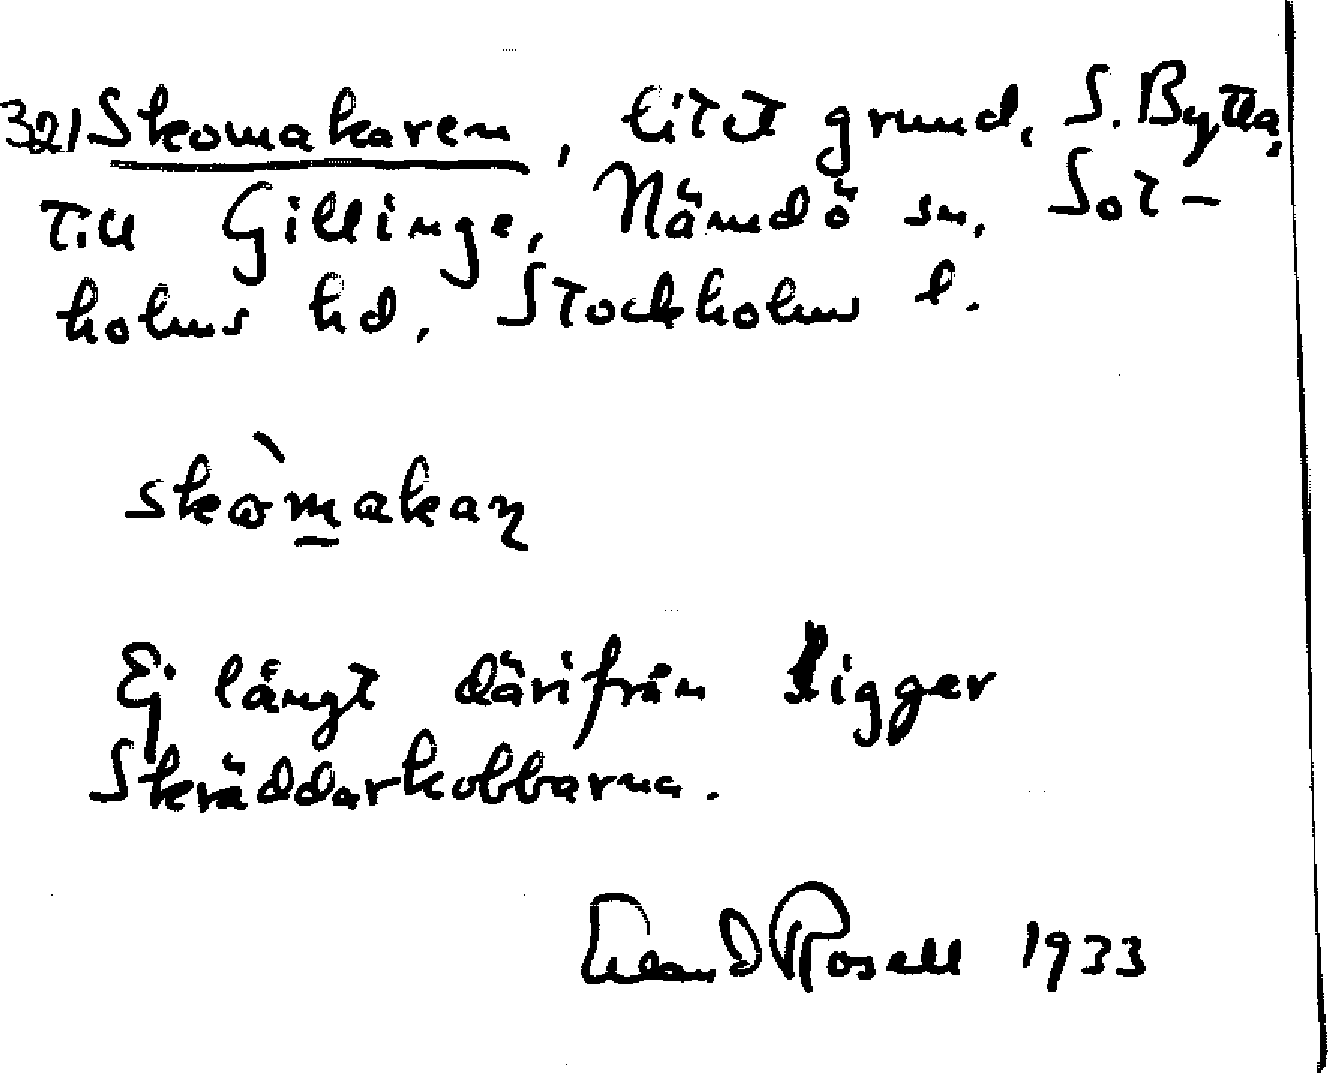 321 Skomakaren, litet grund, S. Bytta,
till Gillinge, Nämdö sn, Sot-
holms hd, Stockholms l.
skòmakaɳ
Ej långt därifrån ligger
Skräddarkobbarna.
Rosell 1933